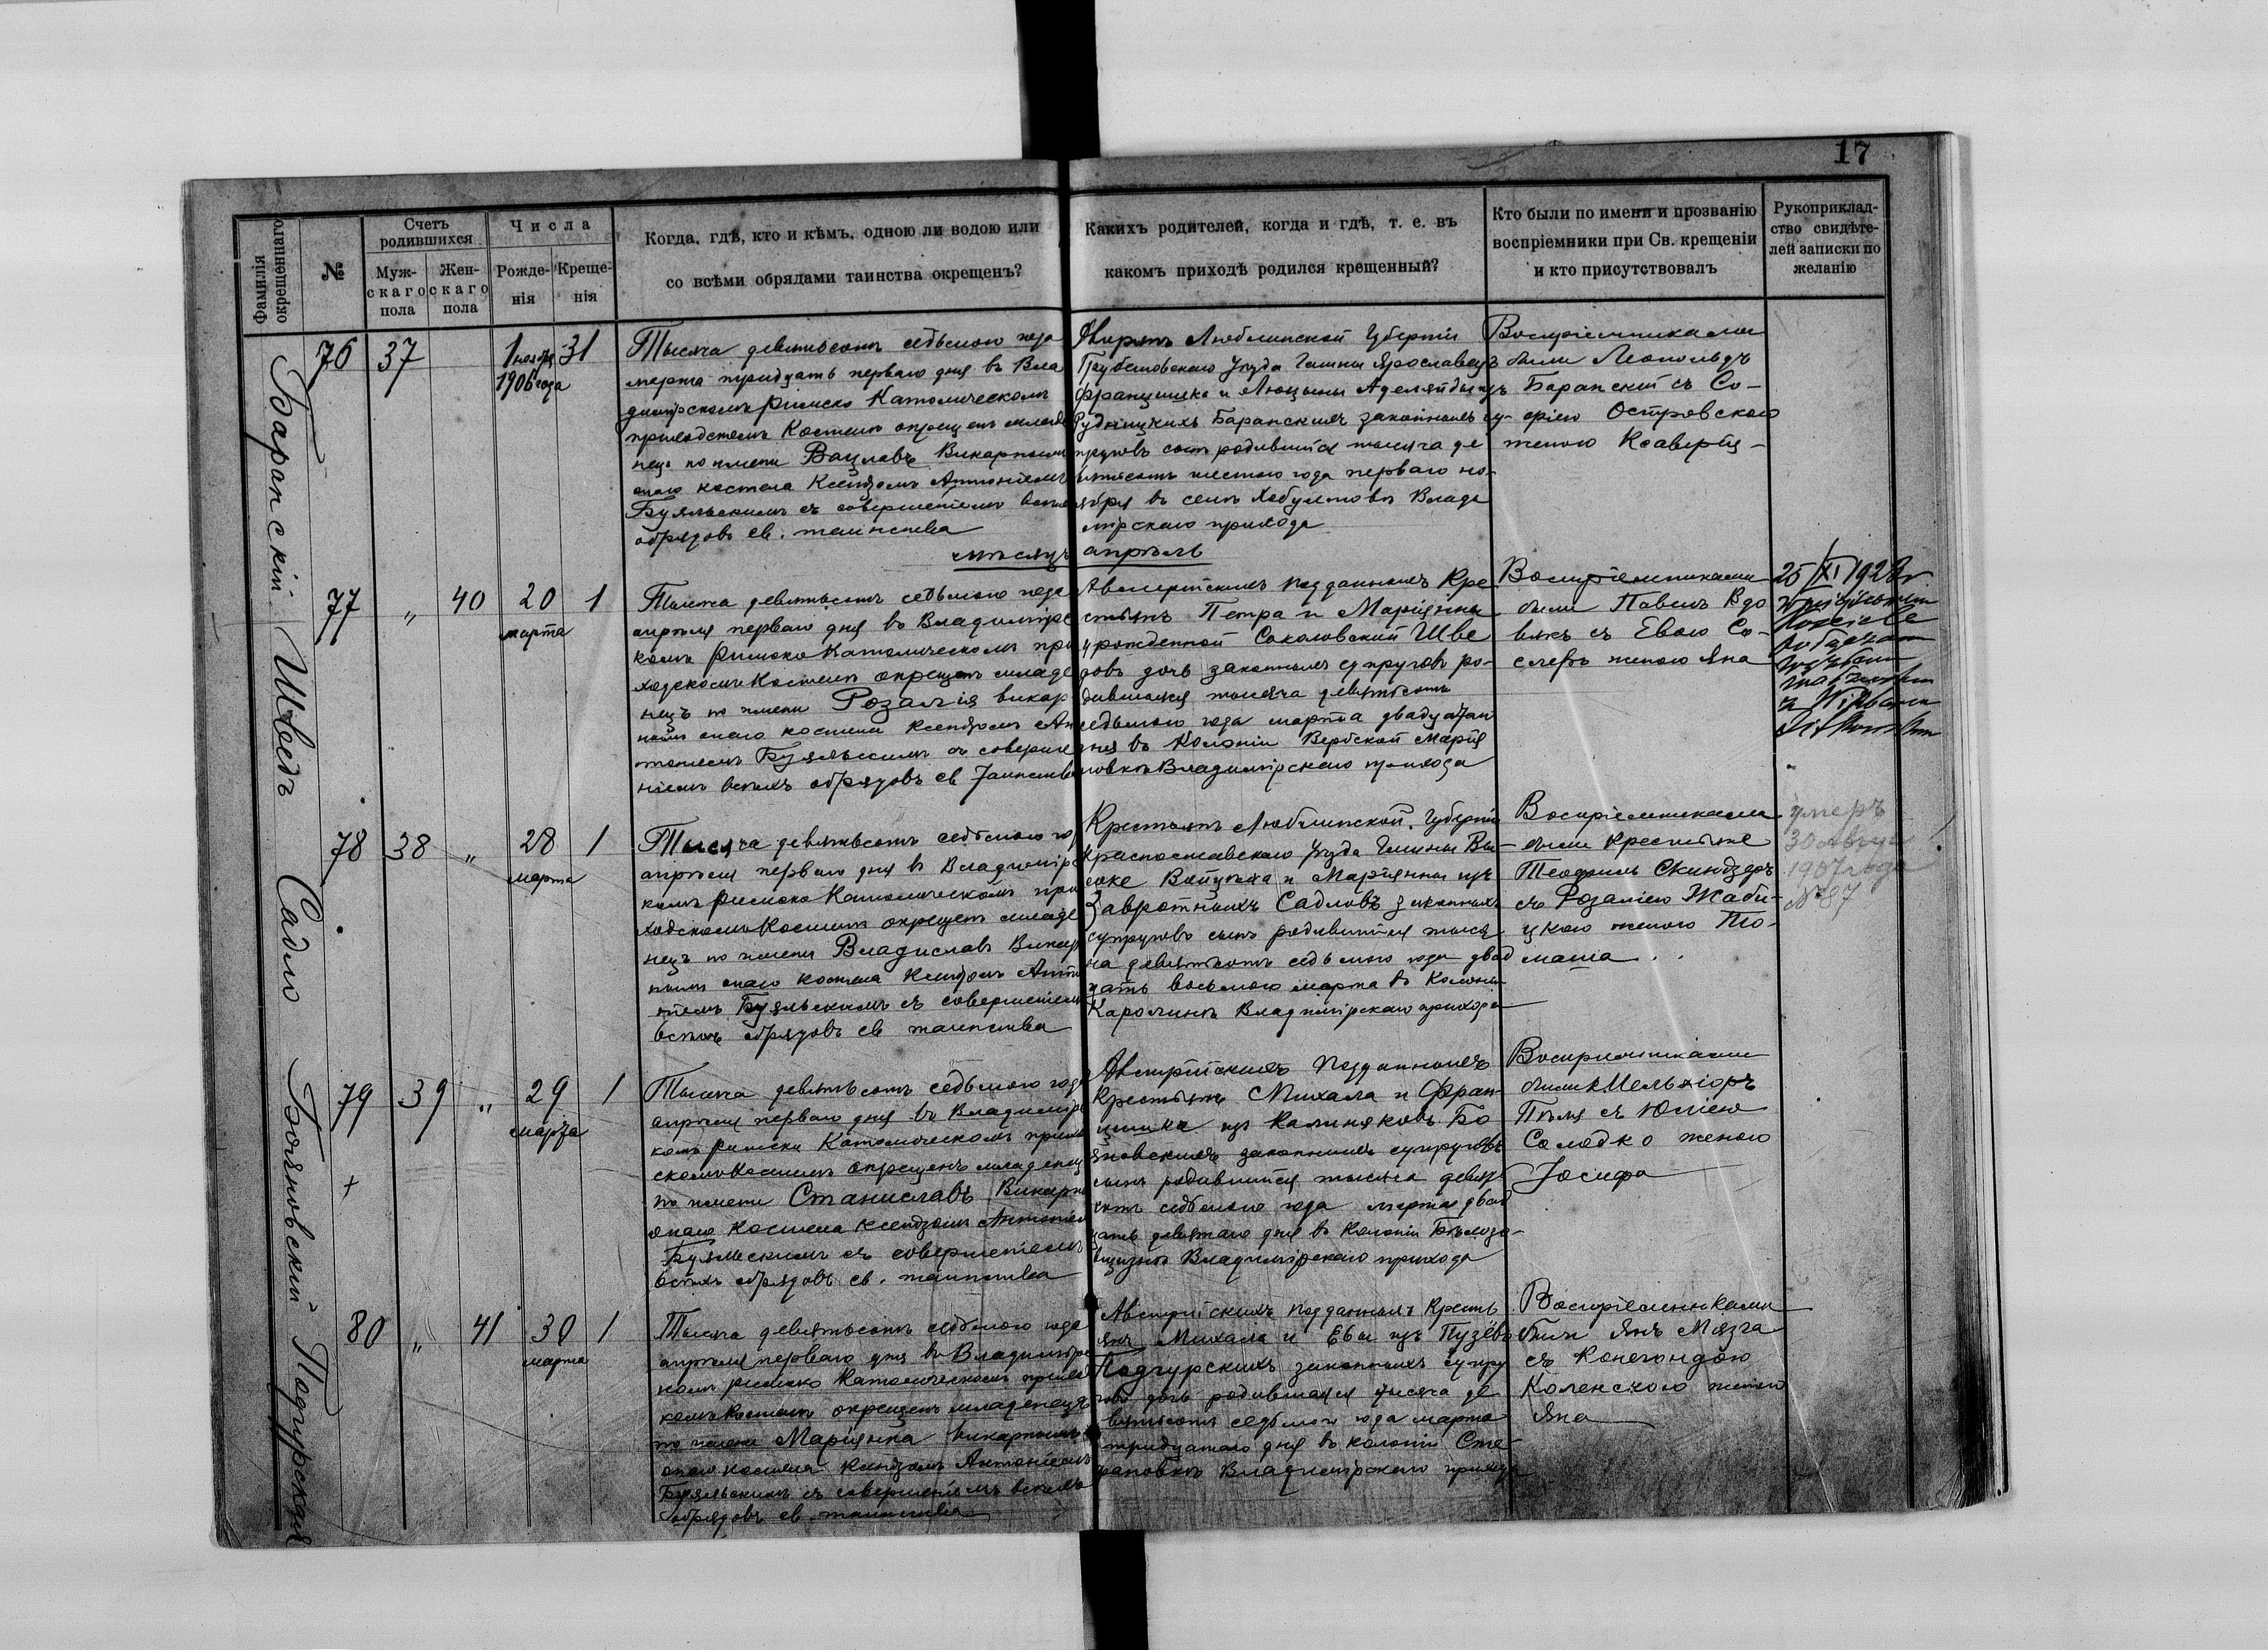 17
Фамилія окрещеннаго
№
Счетъ родившихся
Мужскаго пола
Женскаго пола
Числа
Рожденія
Крещенія
Когда, гдѣ, кто и кѣмъ, одною ли водою или
со всѣми обрядами таинства окрещенъ?
Какихъ родителей, когда и гдѣ, т. е. въ
какомъ приходѣ родился крещенный?
Кто были по имени и прозванію
воспріемники при Св. крещеніи
и кто присутствовалъ
Рукоприклад-
ство свидѣте-
лей записки по
желанію
Баранскій
76 37 1 ноября 1906 года 31
Тысяча девятьсотъ седьмого года
марта тридцать перваго дня въ Вла
димірскомъ римско Католическомъ
приходскомъ Костелѣ окрещенъ младе
нецъ по имени Вацлавъ Викарнымъ
онаго костела Ксендзомъ Антоніемъ
Буяльскимъ съ совершеніемъ всѣхъ
обрядовъ св. таинства
Дворянъ Люблинской Губерніи
Грубешовскаго уѣзда Гмины Ярославецъ
Францишка и Люцыны Аделяйды изъ
Рудницкихъ Баранскихъ законныхъ су-
пруговъ сынъ родившійся тысяча де
вятьсотъ шестого года перваго но-
ября въ селѣ Хобултовѣ Влади
мірскаго прихода
Воспріемниками
были Леопольдъ
Баранскій съ Со-
фіею Островскою
женою Ксаверія
мѣсяцъ апрѣль
Шведъ
77 „ 40 20 марта 1
Тысяча девятьсотъ седьмого года
апрѣля перваго дня въ Владимірс
комъ римско Католическомъ при
ходскомъ Костелѣ окрещенъ младе
нецъ по имени Розалія викар
нымъ онаго костела Ксендзомъ Ан
тоніемъ Буяльскимъ съ соверше
ніемъ всѣхъ обрядовъ св Таинства
Австрійскихъ подданныхъ Кре
стьянъ Петра и Маріянны
урожденной Соколовской Шве
довъ дочь законныхъ супруговъ ро-
дившаяся тысяча девятьсотъ
седьмого года марта двадцатаго
дня въ Колоніи Вербской Марія
новкѣ Владимірскаго прихода
Воспріемниками
были Павелъ Вдо
вякъ съ Евою Со-
женою Яна
25/XI 1928 r.
Садло
78 38 „ 28 марта 1
Тысяча девятьсотъ седьмого го
апрѣля перваго дня въ Владимірс
комъ римско Католическомъ при
ходскомъ Костелѣ окрещенъ младе
нецъ по имени Владиславъ Викар
нымъ онаго костела Ксендзомъ Анто
ніемъ Буяльскимъ съ совершеніемъ
всѣхъ обрядовъ св таинства
Крестьянъ Люблинской Губерніи
Красноставскаго уѣзда Гмины Вы-
соке Войцѣха и Маріянны изъ
Завротныхъ Садловъ законныхъ
супруговъ сынъ родившійся тыся
ча девятьсотъ седьмого года двад
цать восьмого марта въ Колоніи
Каролинѣ Владимірскаго прихода
Воспріемниками
были крестьяне
Теофиль Скиндзеръ
съ Розаліею Жаби-
цкою женою То-
маша
умеръ
30 Августа
1907 года
№ 87
Бояновскій
79 39 „ 29 марта 1
Тысяча девятьсотъ седьмого года
апрѣля перваго дня въ Владимірс
комъ римско Католическомъ приход
скомъ Костелѣ окрещенъ младенецъ
по имени Станиславъ Викарн
онаго Костела Ксендзомъ Антоніем
Буяльскимъ съ совершеніемъ
всѣхъ обрядовъ св. таинства
Австрійскихъ подданныхъ
Крестьянъ Михала и Фран-
цишки изъ Калиняковъ Бо
яновскихъ законныхъ супруговъ
сынъ родившійся тысяча девять
сотъ седьмого года марта двад
цать девятаго дня въ Колоніи
Владимірскаго прихода
Воспріемниками
были Мельхіоръ
съ Юліею
Солодко женою
Іосифа
Подгурская
80 „ 41 30 марта 1
Тысяча девятьсотъ седьмого года
апрѣля перваго дня въ Владимірс
комъ римско Католическомъ приход
комъ Костелѣ окрещенъ младенецъ
по имени Маріянна викарнымъ
онаго костела Ксендзомъ Антоніемъ
Буяльскимъ съ совершеніемъ всѣхъ
обрядовъ св таинства
Австрійскихъ подданныхъ Кресть
янъ Михала и Евы изъ Пузёвъ
Подгурскихъ законныхъ супру
говъ дочь родившаяся тысяча де
вятьсотъ седьмого года марта
тридцатаго дня въ колоніи Сте-
фановкѣ Владимірскаго прихода
Воспріемниками
были Янъ Мязга
съ Конегондою
Коленскою женою
Яна